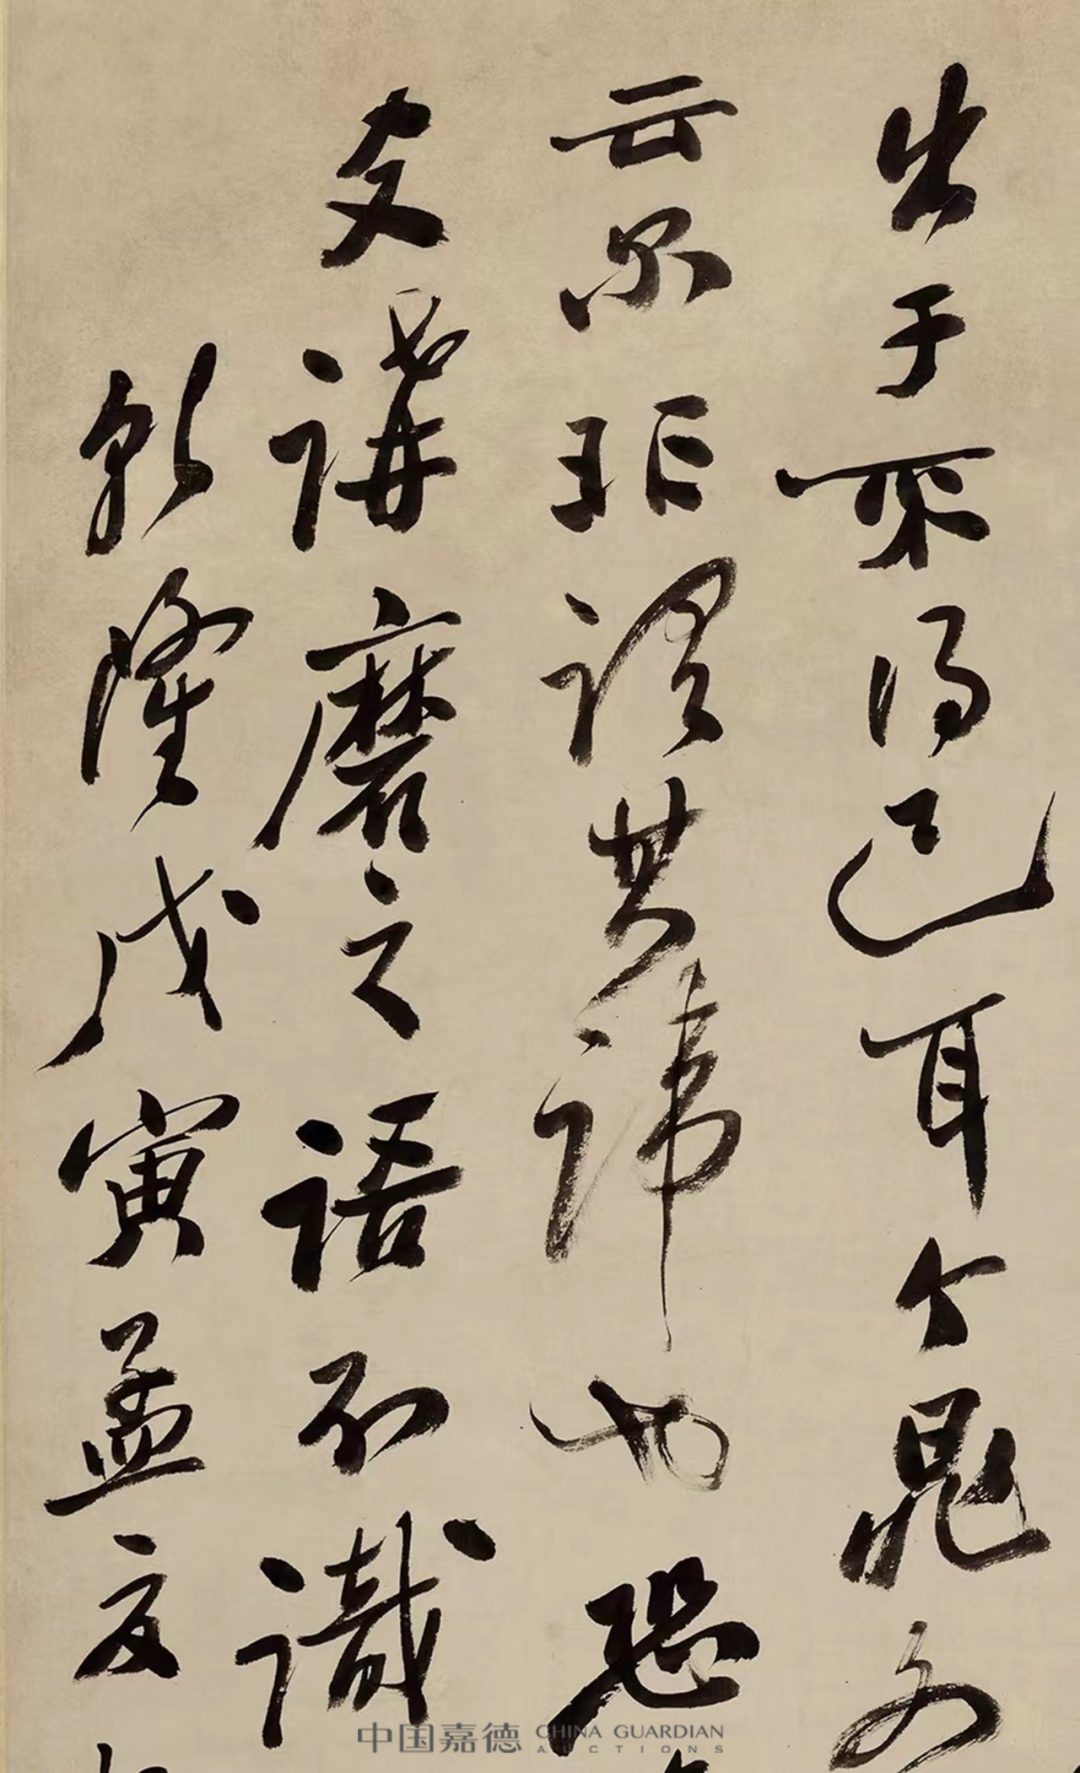 出于不得已耳今晁文
云尔非谓其讳也恐
交讲磨之语不识
乾隆戊寅孟夏
中国嘉德 CHINA GUARDIAN AUCTIONS